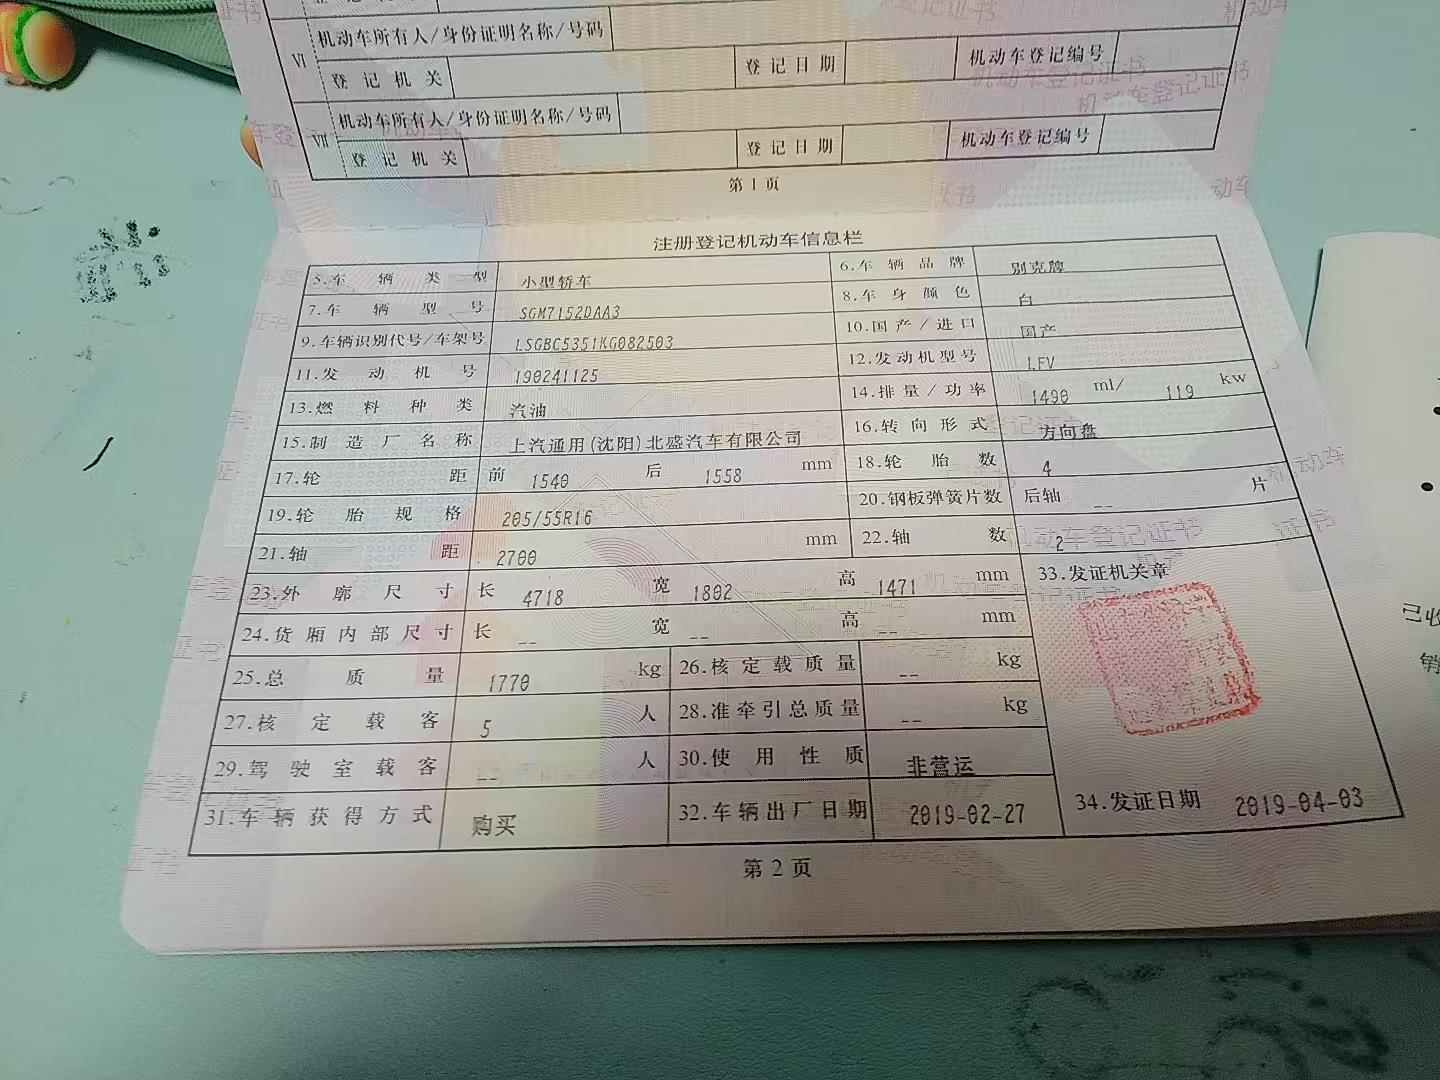 登记机关
VI 机动车所有人/身份证明名称/号码
登记机关 登记日期 机动车登记编号
VII 机动车所有人/身份证明名称/号码
登记机关 登记日期 机动车登记编号
第1页
注册登记机动车信息栏
5.车辆类型 小型轿车 6.车辆品牌 别克牌
7.车辆型号 SGM7152DAA3 8.车身颜色 白
9.车辆识别代号/车架号 LSGBC5351KG082503 10.国产/进口 国产
11.发动机号 190241125 12.发动机型号 LFV
13.燃料种类 汽油 14.排量/功率 1490 ml/ 119 kw
15.制造厂名称 上汽通用(沈阳)北盛汽车有限公司 16.转向形式 方向盘
17.轮距 前 1540 后 1558 mm 18.轮胎数 4
19.轮胎规格 205/55R16 20.钢板弹簧片数 后轴 -- 片
21.轴距 2700 mm 22.轴数 2
23.外廓尺寸 长 4718 宽 1802 高 1471 mm 33.发证机关章
24.货厢内部尺寸 长 -- 宽 -- 高 -- mm
25.总质量 1770 kg 26.核定载质量 -- kg
27.核定载客 5 人 28.准牵引总质量 -- kg
29.驾驶室载客 -- 人 30.使用性质 非营运
31.车辆获得方式 购买 32.车辆出厂日期 2019-02-27 34.发证日期 2019-04-03
第2页
已收
销